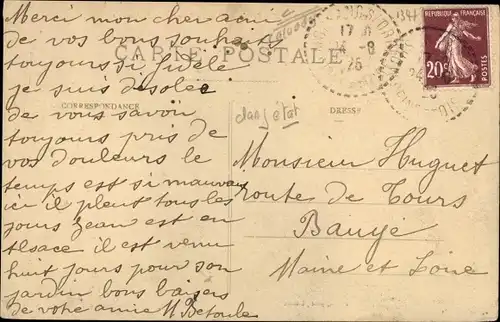 Merci mon cher ami
de vos bons souhaits
toujours si fidèle
je suis désolée
de vous savoir
toujours pris de
vos douleurs le
temps est si mauvais
ici il pleut tous les
jours Jean est en
Alsace il est venu
huit jours pour son
jardin bons baisers
de votre amie M Betoule
CARTE POSTALE
CORRESPONDANCE
DRESSE
dans l'état
Monsieur Huguet
route de Tours
Baugé
Maine et Loire
RÉPUBLIQUE FRANÇAISE
20c
POSTES
-8